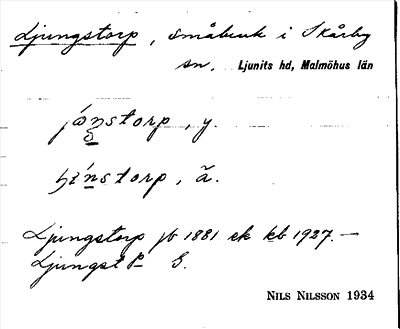 Ljungstorp, småbruk i Skårby
sn. Ljunits hd, Malmöhus län
jónstorp, y.
hínstorp, ã.
Ljungstorp jb 1881 ek kb 1927. —
Ljungst P G.
NILS NILSSON 1934